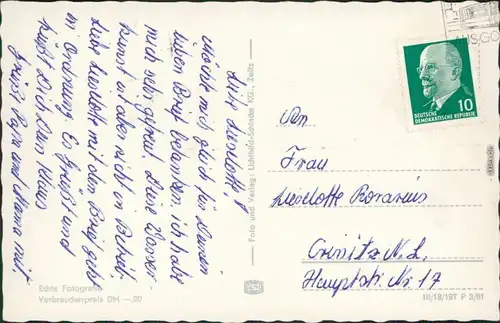 Liebe Lieselotte!
Möchte mich gleich für Deinen
lieben Brief bedanken, ich habe
mich sehr gefreut. Diese Wasser-
kunst ist aber nicht in Betrieb.
Liebe Lieselotte mit dem Brief geht
in Ordnung. Es Grüßt und
küßt Dich Dein Klaus
Grüß Papa und Mama mit
Echte Fotografie
Verbraucherpreis DM —,20
Foto und Verlag: KG., Zeitz
10
DEUTSCHE
DEMOKRATISCHE REPUBLIK
An
Frau
Lieselotte
Crinitz N.L.
Hauptstr. Nr 17
III/18/197 P 3/61